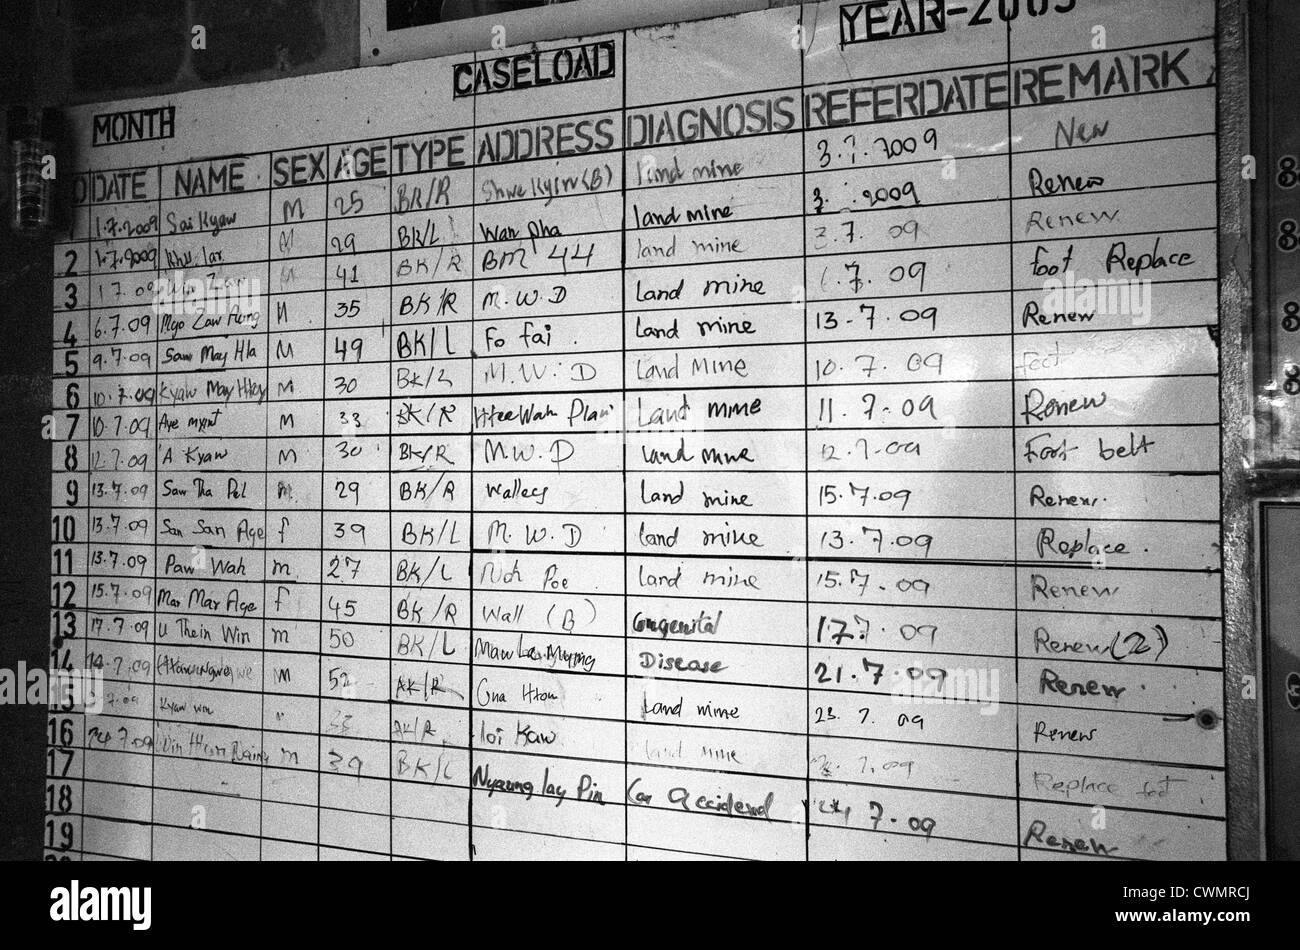 CASELOAD YEAR-2009
MONTH
DATE NAME SEX AGE TYPE ADDRESS DIAGNOSIS REFERDATE REMARK
1 1.7.2009 Sai Kyaw M 25 BK/R Shwe Kyin (B) land mine 3.7.2009 New
2 1.7.2009 Khu lar M 29 BK/L Wan pha land mine 3. .2009 Renew
3 1 7.09 Win Zaw M 41 BK/R BM 44 land mine 3.7.09 Renew
4 6.7.09 Myo Zaw Aung M 35 BK/R M.W.D Land mine 7.09 foot Replace
5 9.7.09 Saw May Hla M 49 BK/L Fo fai. Land mine 13.7.09 Renew
6 10.7.09 Kyaw May M 30 BK/L M.W.D Land Mine 10.7.09 foot
7 10.7.09 Aye myint M 33 BK/R Htee Wah Plaw Land mine 11.7.09 Renew
8 12.7.09 A Kyaw M 30 BK/R M.W.D Land mine 12.7.09 Foot belt
9 13.7.09 Saw Tha Pel m 29 BK/R Walleey Land mine 15.7.09 Renew.
10 13.7.09 San San Age f 39 BK/L M.W.D land mine 13.7.09 Replace.
11 13.7.09 Paw Wah m 27 BK/L Noh Poe land mine 15.7.09 Renew
12 15.7.09 Mar Mar Age f 45 BK/R Wall (B) Congenital 17.7.09 Renew (2)
13 17.7.09 U Thein Win m 50 BK/L Maw La Disease 21.7.09 Renew.
14 14.7.09 m 52 AK/R Land mine 23.7.09 Renew
15 7.09 Kyaw win 33 AK/R loi Kaw land mine 7.09 Replace foot
16 24.7.09 Win m 39 BK/L Nyaung lay Pin Car Accidend 24 7.09 Renew
17
18
19
alamy
a
Image ID: CWMRCJ
www.alamy.com